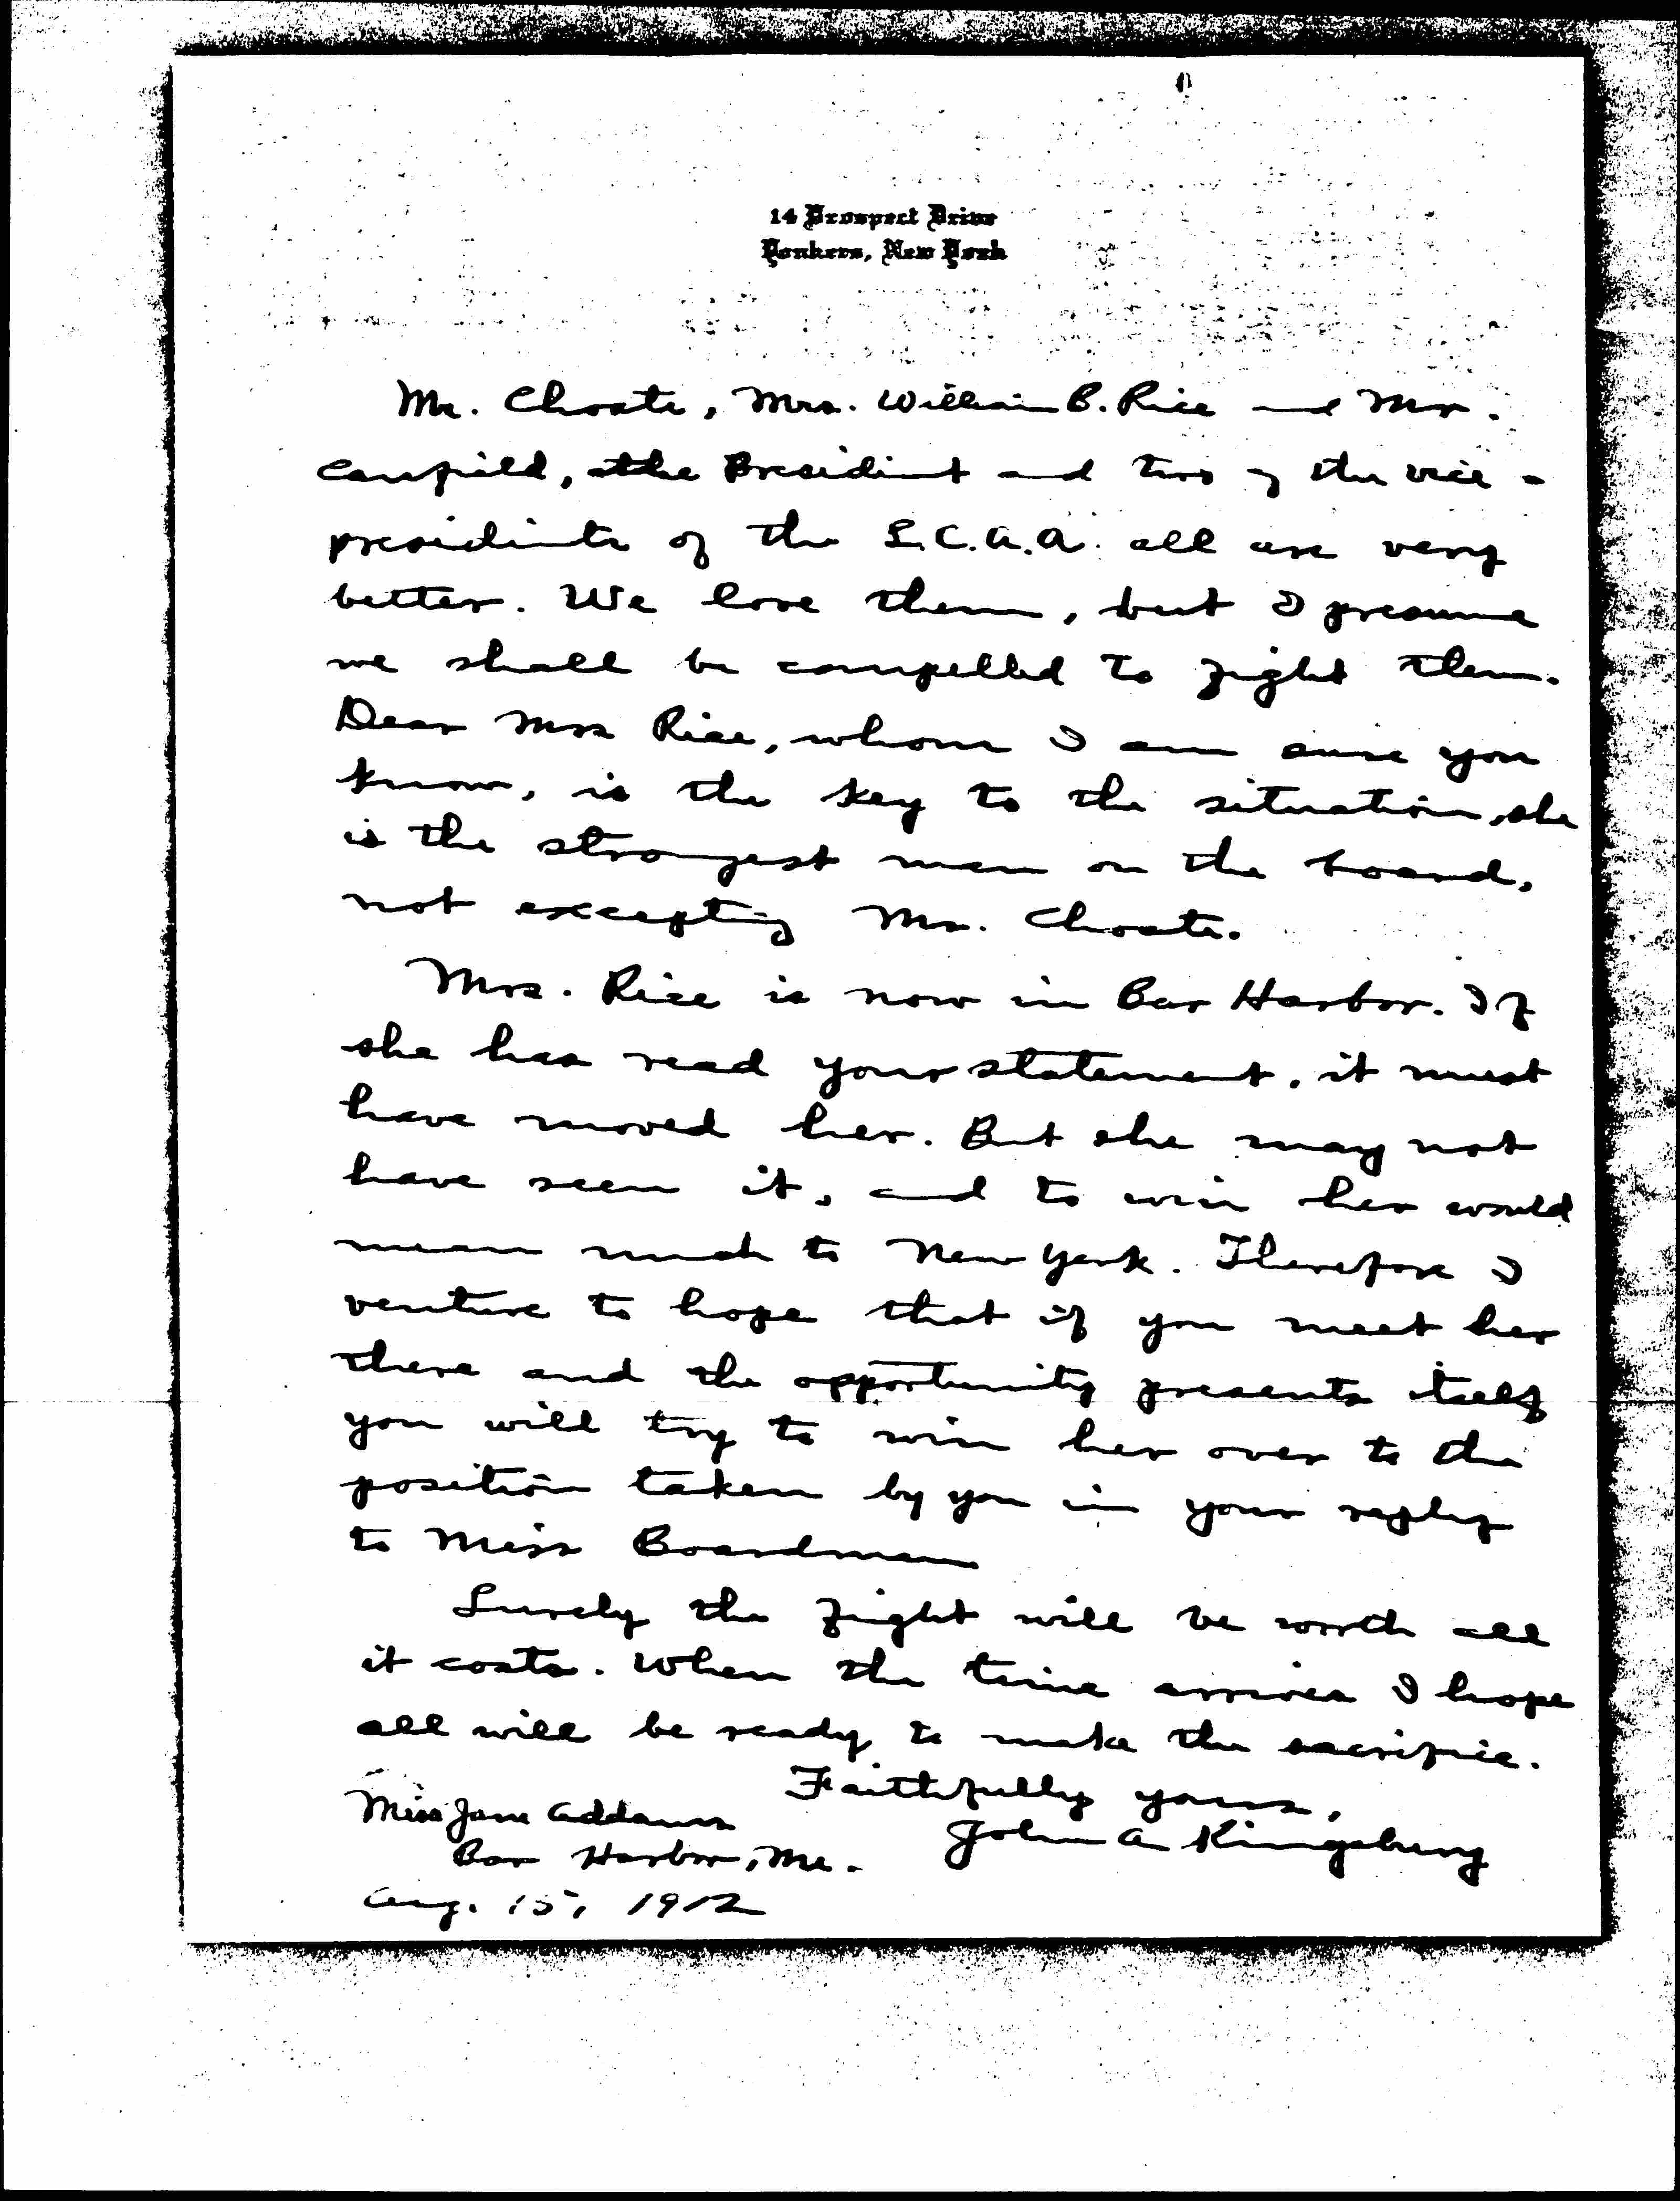 14 Prospect Drive
Yonkers, New York
Mr. Choate, Mrs. William B. Rice and Mr.
Canfield, the President and two of the vice-
presidents of the S.C.A.A. all are very
better. We love them, but I presume
we shall be compelled to fight them.
Dear Mrs Rice, whom I am sure you
know, is the key to the situation, she
is the strongest man on the board,
not excepting Mr. Choate.
Mrs. Rice is now in Bar Harbor. If
she has read your statement, it must
have moved her. But she may not
have seen it, and to win her would
mean much to New York. Therefore I
venture to hope that if you meet her
there and the opportunity presents itself
you will try to win her over to the
position taken by you in your reply
to Miss Boardman
Surely the fight will be worth all
it costs. When the time arrives I hope
all will be ready to make the sacrifice.
Faithfully yours,
Miss Jane Addams
John A Kingsbury
Bar Harbor, Me.
Aug. 15, 1912